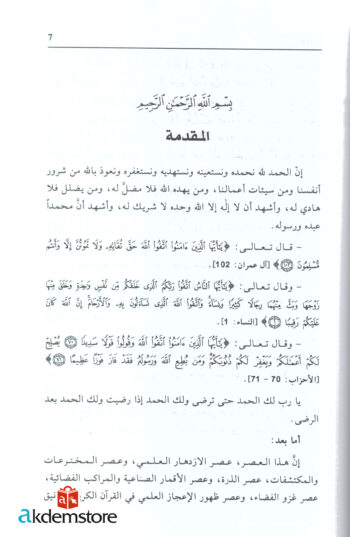 7
بِسْمِ اللَّهِ الرَّحْمَنِ الرَّحِيمِ
المقدمة
إنّ الحمد لله نحمده ونستعينه ونستهديه ونستغفره ونعوذ بالله من شرور
أنفسنا ومن سيئات أعمالنا، ومن يهده الله فلا مضلّ له، ومن يضلل فلا
هادي له، وأشهد أن لا إله إلا الله وحده لا شريك له، وأشهد أنّ محمداً
عبده ورسوله.
- قال تعالى: ﴿يَٰٓأَيُّهَا الَّذِينَ ءَامَنُوا اتَّقُوا اللَّهَ حَقَّ تُقَاتِهِۦ وَلَا تَمُوتُنَّ إِلَّا وَأَنتُم
مُّسْلِمُونَ﴾ [آل عمران: 102].
- وقال تعالى: ﴿يَٰٓأَيُّهَا النَّاسُ اتَّقُوا رَبَّكُمُ الَّذِى خَلَقَكُم مِّن نَّفْسٍ وَٰحِدَةٍ وَخَلَقَ مِنْهَا
زَوْجَهَا وَبَثَّ مِنْهُمَا رِجَالًا كَثِيرًا وَنِسَآءً وَاتَّقُوا اللَّهَ الَّذِى تَسَآءَلُونَ بِهِۦ وَالْأَرْحَامَ إِنَّ اللَّهَ كَانَ
عَلَيْكُمْ رَقِيبًا ﴿1﴾﴾ [النساء: 1].
- وقال تعالى: ﴿يَٰٓأَيُّهَا الَّذِينَ ءَامَنُوا اتَّقُوا اللَّهَ وَقُولُوا قَوْلًا سَدِيدًا ﴿70﴾ يُصْلِحْ
لَكُمْ أَعْمَٰلَكُمْ وَيَغْفِرْ لَكُمْ ذُنُوبَكُمْ وَمَن يُطِعِ اللَّهَ وَرَسُولَهُۥ فَقَدْ فَازَ فَوْزًا عَظِيمًا ﴿71﴾﴾
[الأحزاب: 70 - 71].
يا رب لك الحمد حتى ترضى ولك الحمد إذا رضيت ولك الحمد بعد
الرضى.
أما بعد:
إنّ هذا العصر، عصر الازدهار العلمي، وعصر المخترعات
والمكتشفات، عصر الذرة، وعصر الأقمار الصناعية والمراكب الفضائية،
عصر غزو الفضاء، وعصر ظهور الإعجاز العلمي في القرآن
akdemstore